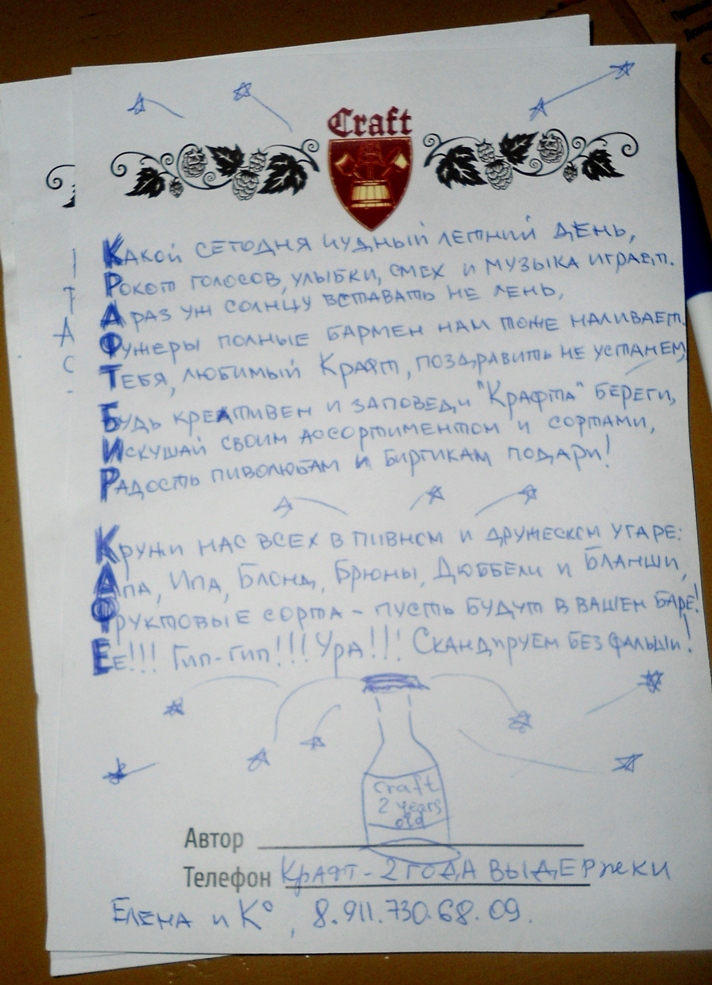 Craft
Какой сегодня чудный летний день,
Рокот голосов, улыбки, смех и музыка играет.
А раз уж солнцу вставать не лень,
Фужеры полные бармен нам тоже наливает.
Тебя, любимый Крафт, поздравить не устанем,
Будь креативен и заповеди "Крафта" береги,
Искушай своим ассортиментом и сортами,
Радость пиволюбам и биргикам подари!
Кружи нас всех в пивном и дружеском угаре:
Апа, Ипа, Блонд, Брюны, Дюббели и Бланши,
Фруктовые сорта - пусть будут в вашем баре!
Ее!!! Гип-гип!!! Ура!!! Скандируем без фальши!
craft
2 years
old
Автор
Телефон Крафт - 2 года выдержки
Елена и К°, 8.911.730.68.09.